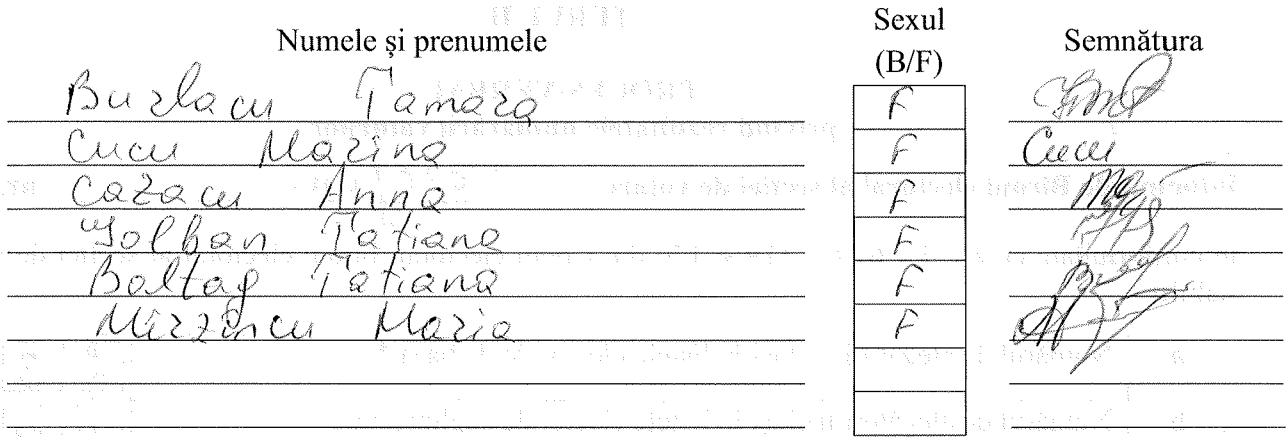 Numele și prenumele Sexul (B/F) Semnătura
Burlacu Tamara F
Cucu Marina F Cucu
Cazacu Anna F
Golban Tatiana F
Boltag Tatiana F
Mirzîncu Maria F